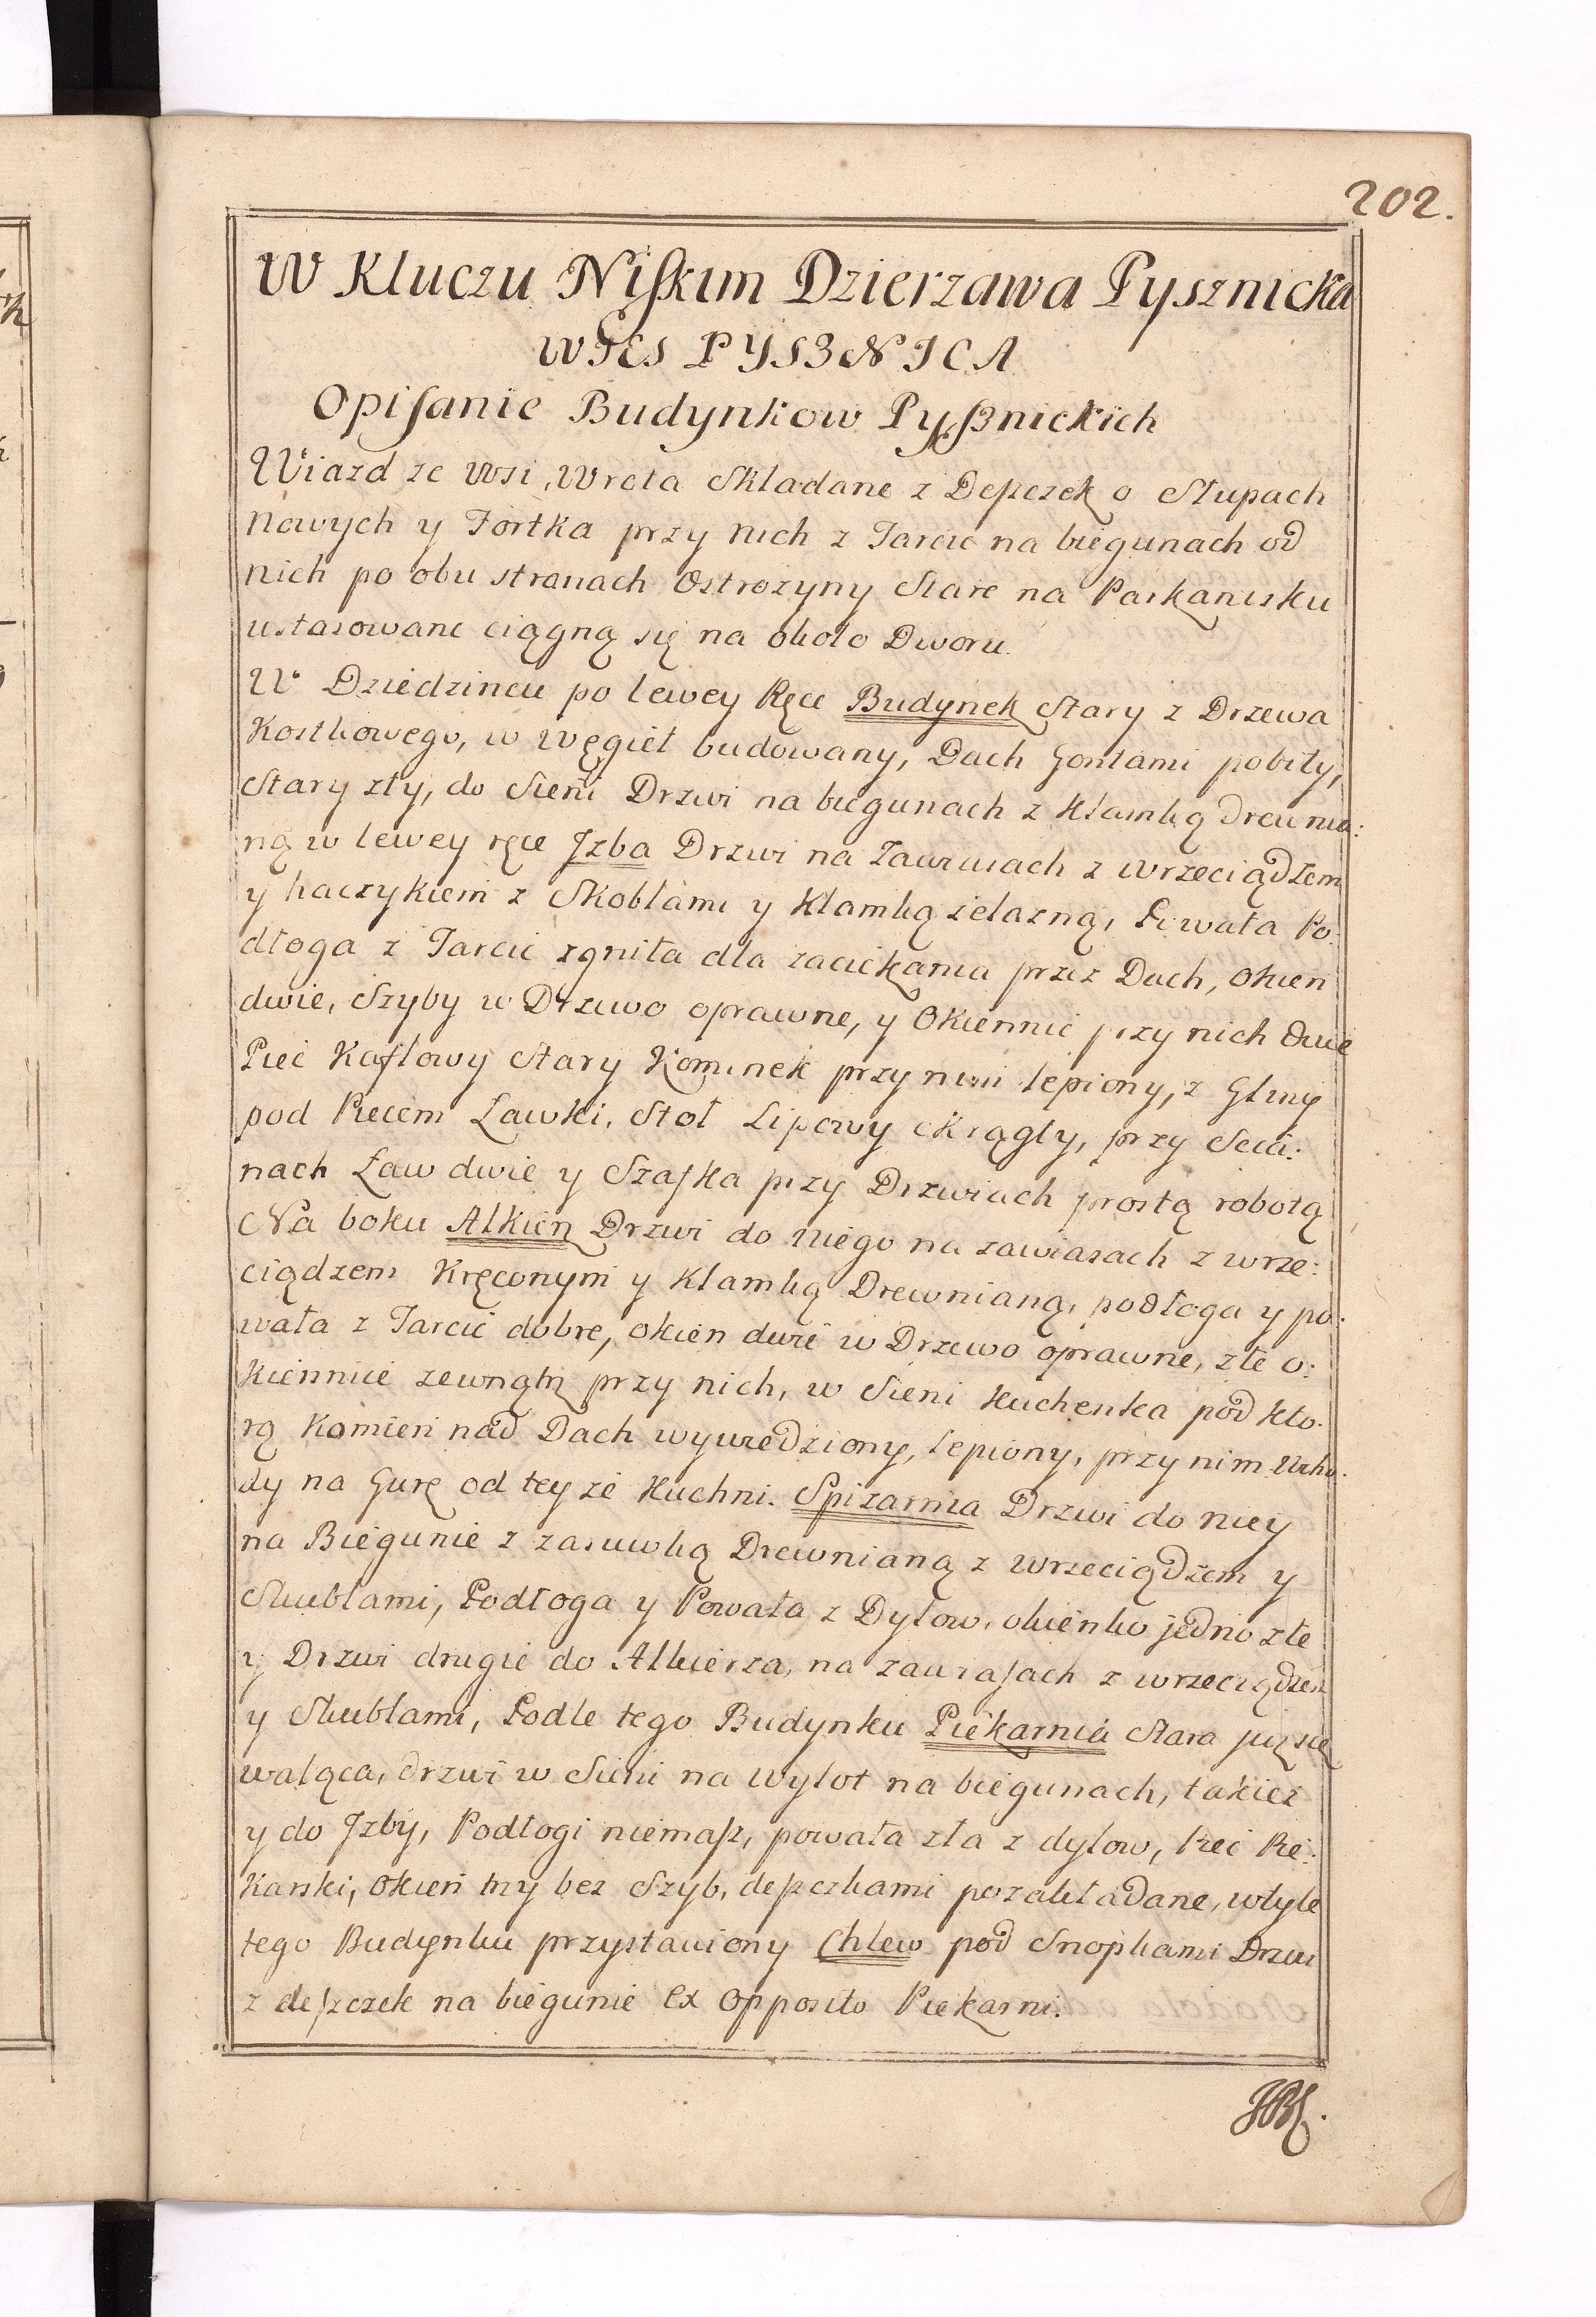 202.
W Kluczu Niſkim Dzierzawa Pysznicka
WIES PYSZNICA
Opiſanie Budynkow Pyſznickich
Wiazd ze Wsi, Wrota Składane z Deſzczek o Słupach
Nowych y Fortka przy nich z Tarcic na biegunach od
nich po obu stronach Ostrozyny Stare na Parkanisku
ustasowane ciągną się na około Dworu.
W Dziedzincu po lewey Ręce Budynek Stary z Drzewa
Kostkowego, w Węgieł budowany, Dach Gontami pobity,
Stary zły, do Sieni Drzwi na biegunach z Klamką drewnia:
ną w lewey ręce Jzba Drzwi na Zawiasach z wrzeciądzem
y haczykiem z Skoblami y Klamką zelazną, Powała Po:
dłoga z Tarcic zgniła dla zaciekania przez Dach, Okien
dwie, Szyby w Drzewo oprawne, y Okiennic przy nich dwie
Piec Kaflowy Stary Kominek przy nim lepiony, z Gliny
pod Piecem Ławki, Stoł Lipowy okrągły, przy Scia:
nach Ław dwie y Szafka przy Drzwiach prostą robotą
Na boku Alkierz Drzwi do niego na zawiasach z wrze:
ciądzem Kręconym y Klamką Drewnianą, podłoga y po:
wała z Tarcic dobre, okien dwie w Drzewo oprawne, złe o:
kiennice zewnątrz przy nich, w Sieni Kuchenka pod kto:
rą Komien nad Dach wywiedziony, lepiony, przy nim Wcho:
dy na Gurę od tey ze Kuchni. Spizarnia Drzwi do niey
na Biegunie z zasuwką Drewnianą z wrzeciądzem y
Skublami, Podłoga y Powała z Dylow, okienko jedno złe
y Drzwi drugie do Alkierza, na zawiaſach z wrzeciądzem
y Skublami, Podle tego Budynku Piekarnia Stara już się
waląca, drzwi w Sieni na wylot na biegunach, takiez
y do Jzby, Podłogi niemaſz, powała zła z dylow, Piec Pie:
karski, Okien trzy bez Szyb, deſzczkami pozakładane, wtyle
tego Budynku przystawiony Chlew pod Snopkami Drzwi
z deſzczek na biegunie Ex Opposito Piekarni.